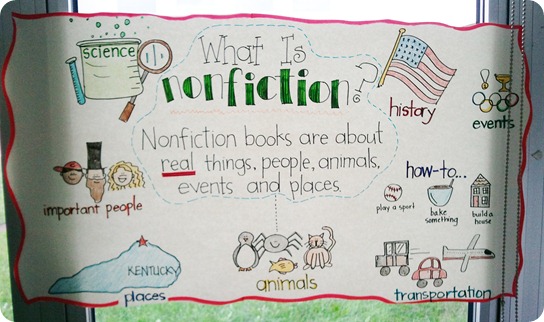 What Is
nonfiction?
Nonfiction books are about
real things, people, animals,
events and places.
science
history
events
important people
how-to...
play a sport
bake
something
build a
house
KENTUCKY
places
animals
transportation